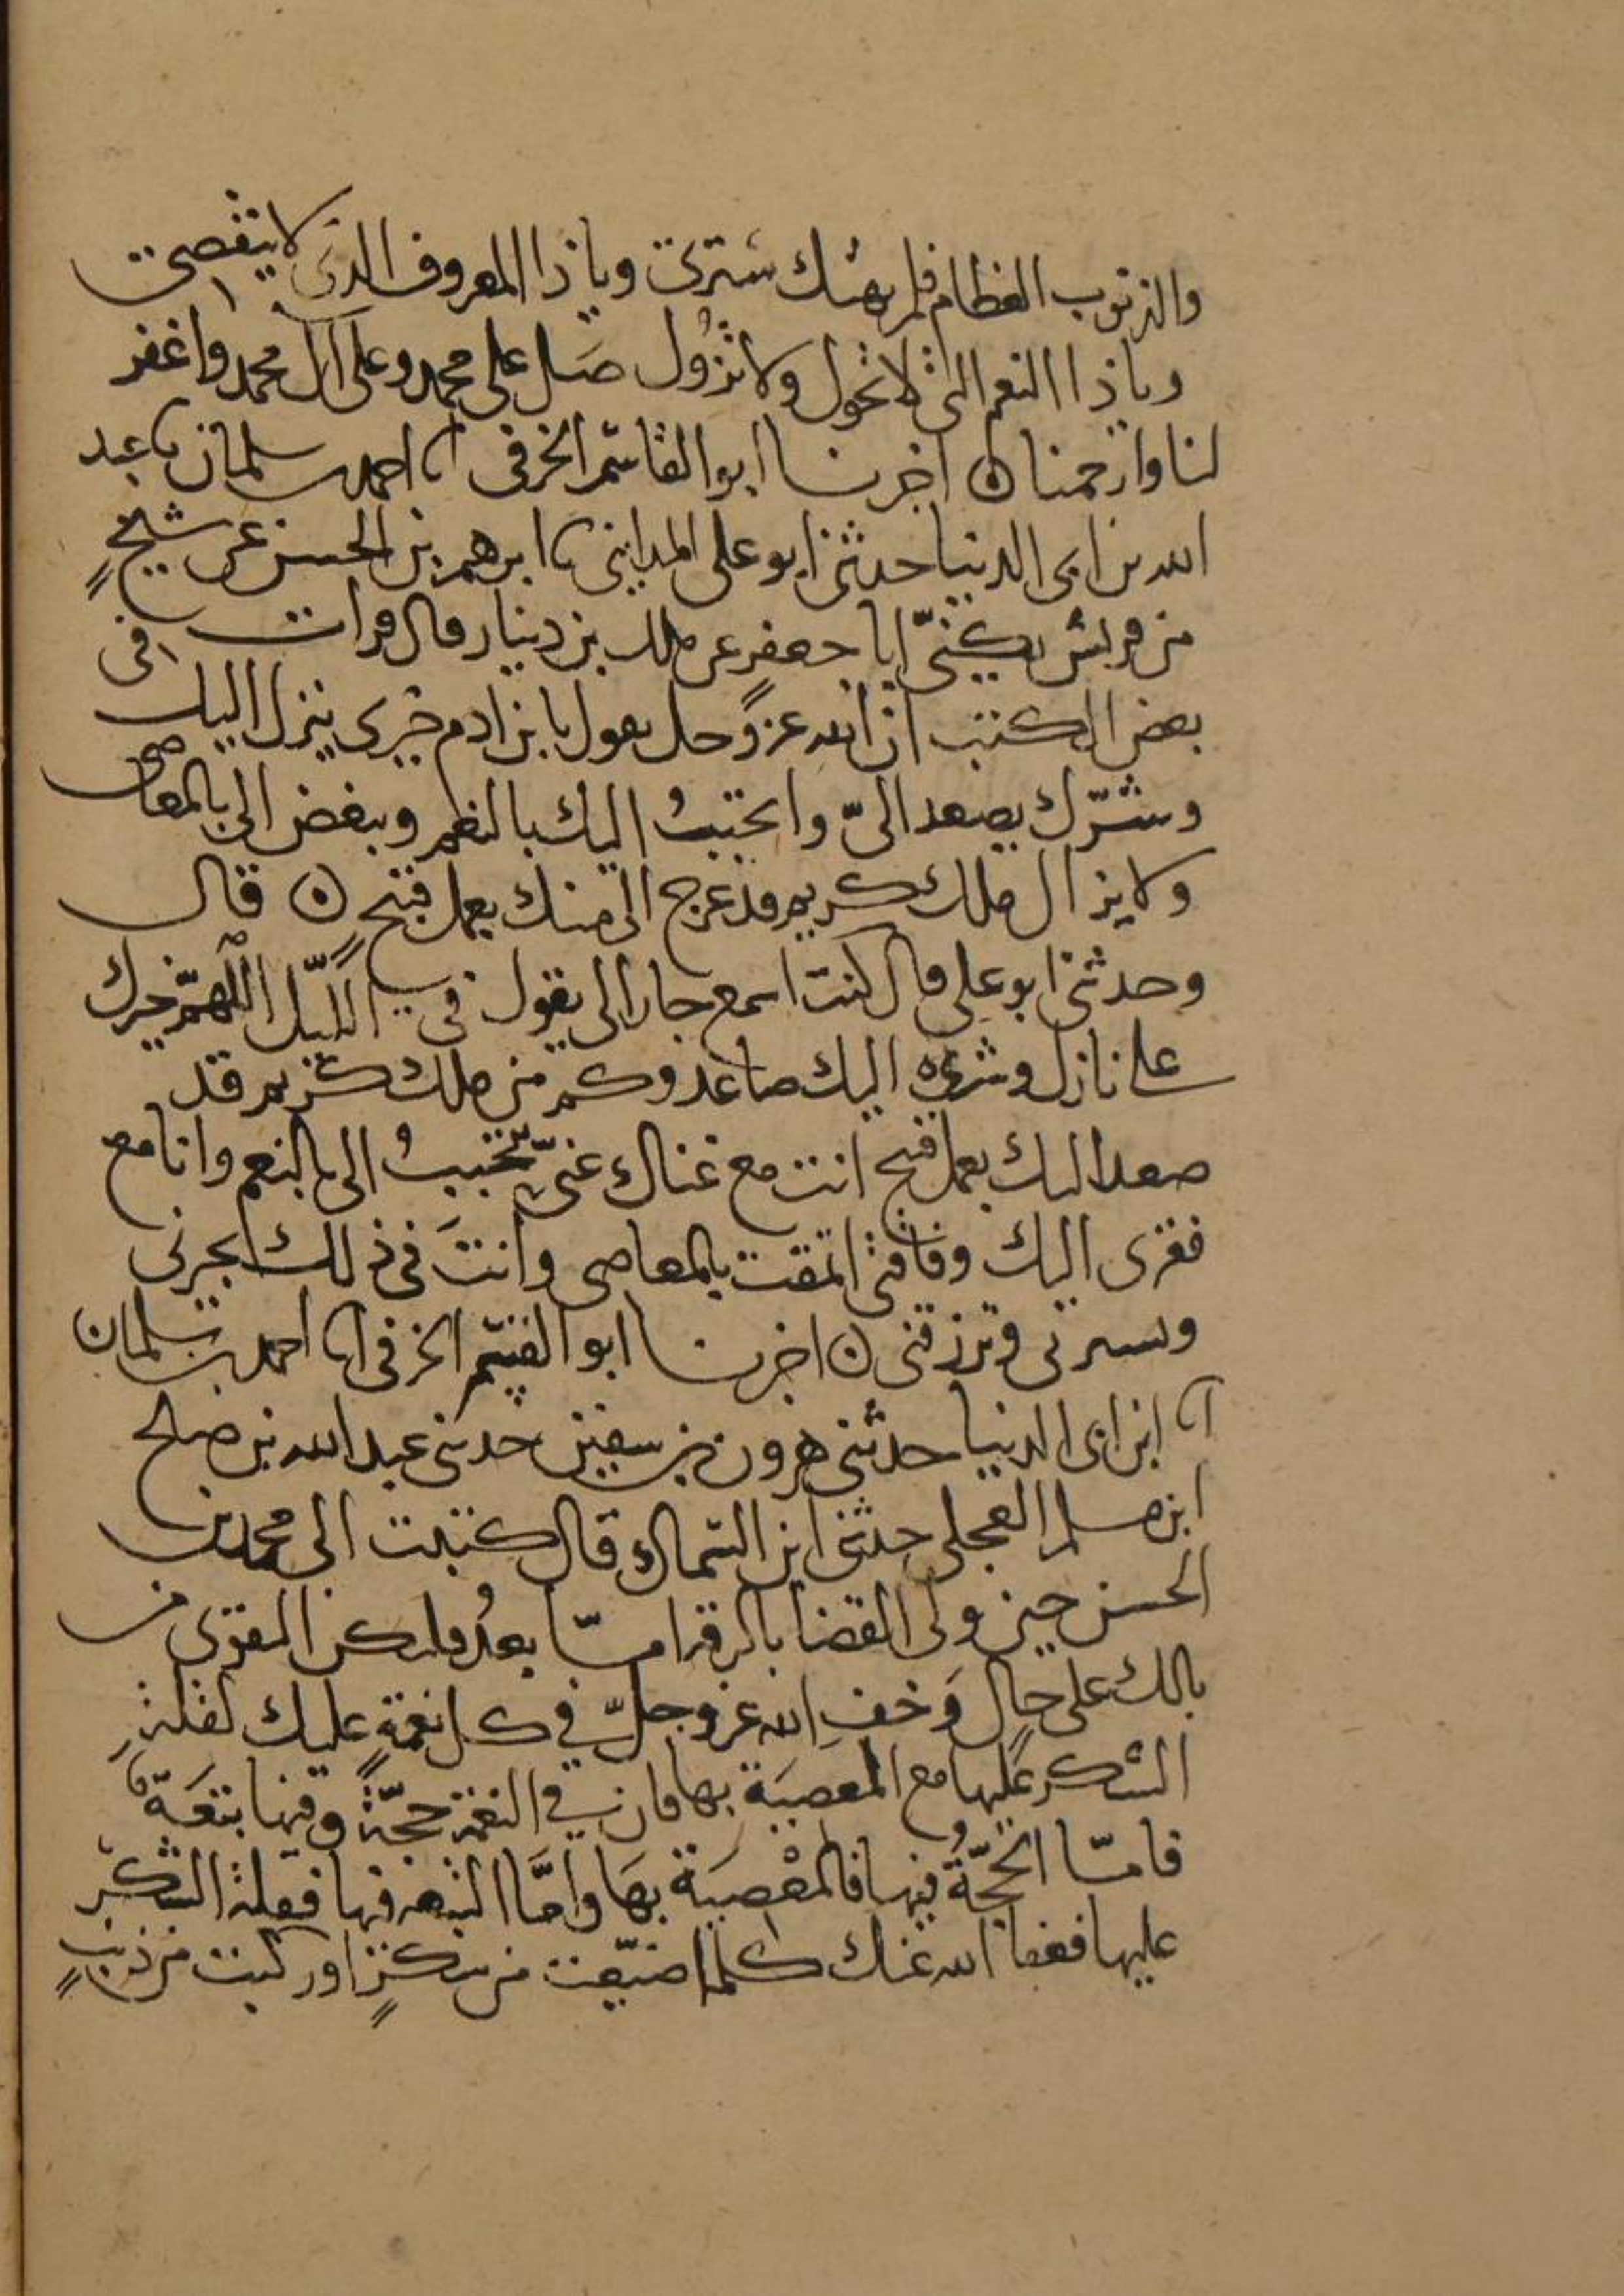 والذنوب العظام فلم يهتك سترى ويا ذا المعروف الذى لا ينقضى
ويا ذا النعم التى لا تحول ولا تزول صل على محمد وعلى آل محمد واغفر
لنا وارحمنا ه اخبرنا ابو القاسم الخرقى انا احمد بن سلمان نا عبد
الله بن ابى الدنيا حدثنى ابو على المداينى نا ابرهيم بن الحسن عن شيخٍ
من قريش يكنىّ ابا جعفر عن ملك بن دينار قال قرات فى
بعض الكتب ان الله عز وجل يقول يا بن ادم خيرى ينزل اليك
وشرّك يصعد الىّ واتحببُ اليك بالنعم وتبغض الى بالمعاصى
ولا يزال ملك كريم قد عرج الى منك بعمل قبيح ه قال
وحدثنى ابو على قال كنت اسمع جارا لى يقول فى الليل اللهمّ خيرك
على نازل وشرى اليك صاعد وكم من ملك كريم قد
صعد اليك بعمل قبيح انت مع غناك عنىّ تتحببُ الى بالنعم وانا مع
فقرى اليك وفاقتى اتمقت بالمعاصى وانتَ فى ذلك تجبرنى
وتسترنى وترزقنى ه اخبرنا ابو القسم الخرقى انا احمد بن سلمان
نا ابن ابى الدنيا حدثنى هرون بن سفين حدثنى عبد الله بن صلح
ابن مسلم العجلى حدثنى ابن السماك قال كتبت الى محمد بن
الحسن حين ولى القضا بالرقة امّا بعدُ فلتكن التقوى من
بالك على حالٍ وَخفِ الله عز وجلّ فى كل نعمةٍ عليك لقلةِ
الشكر عليها مع المعصيَة بها فان فى النعمة حجّةً وفيها تبعَةً
فامّا الحجّةُ فيها فالمعْصيَة بهَا وامَّا التبعة فيها فقلة الشكر
عليها فعفا الله عنك كلما ضيّعت من شكرٍ او ركبت من ذنبٍ